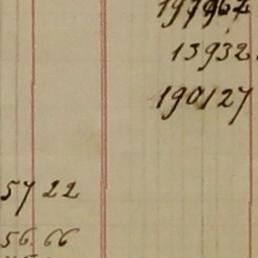 13932
190127
57 22
56.66